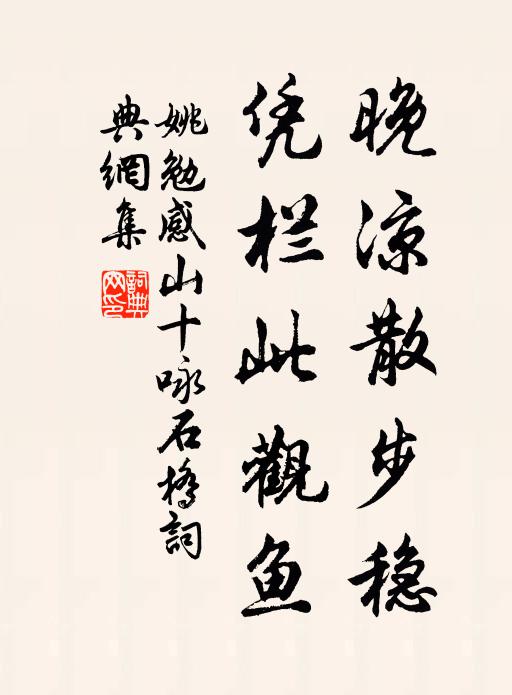 晚凉散步稳
凭栏此觀鱼
姚勉感山十咏石橋詞
典網集
詞典
网印